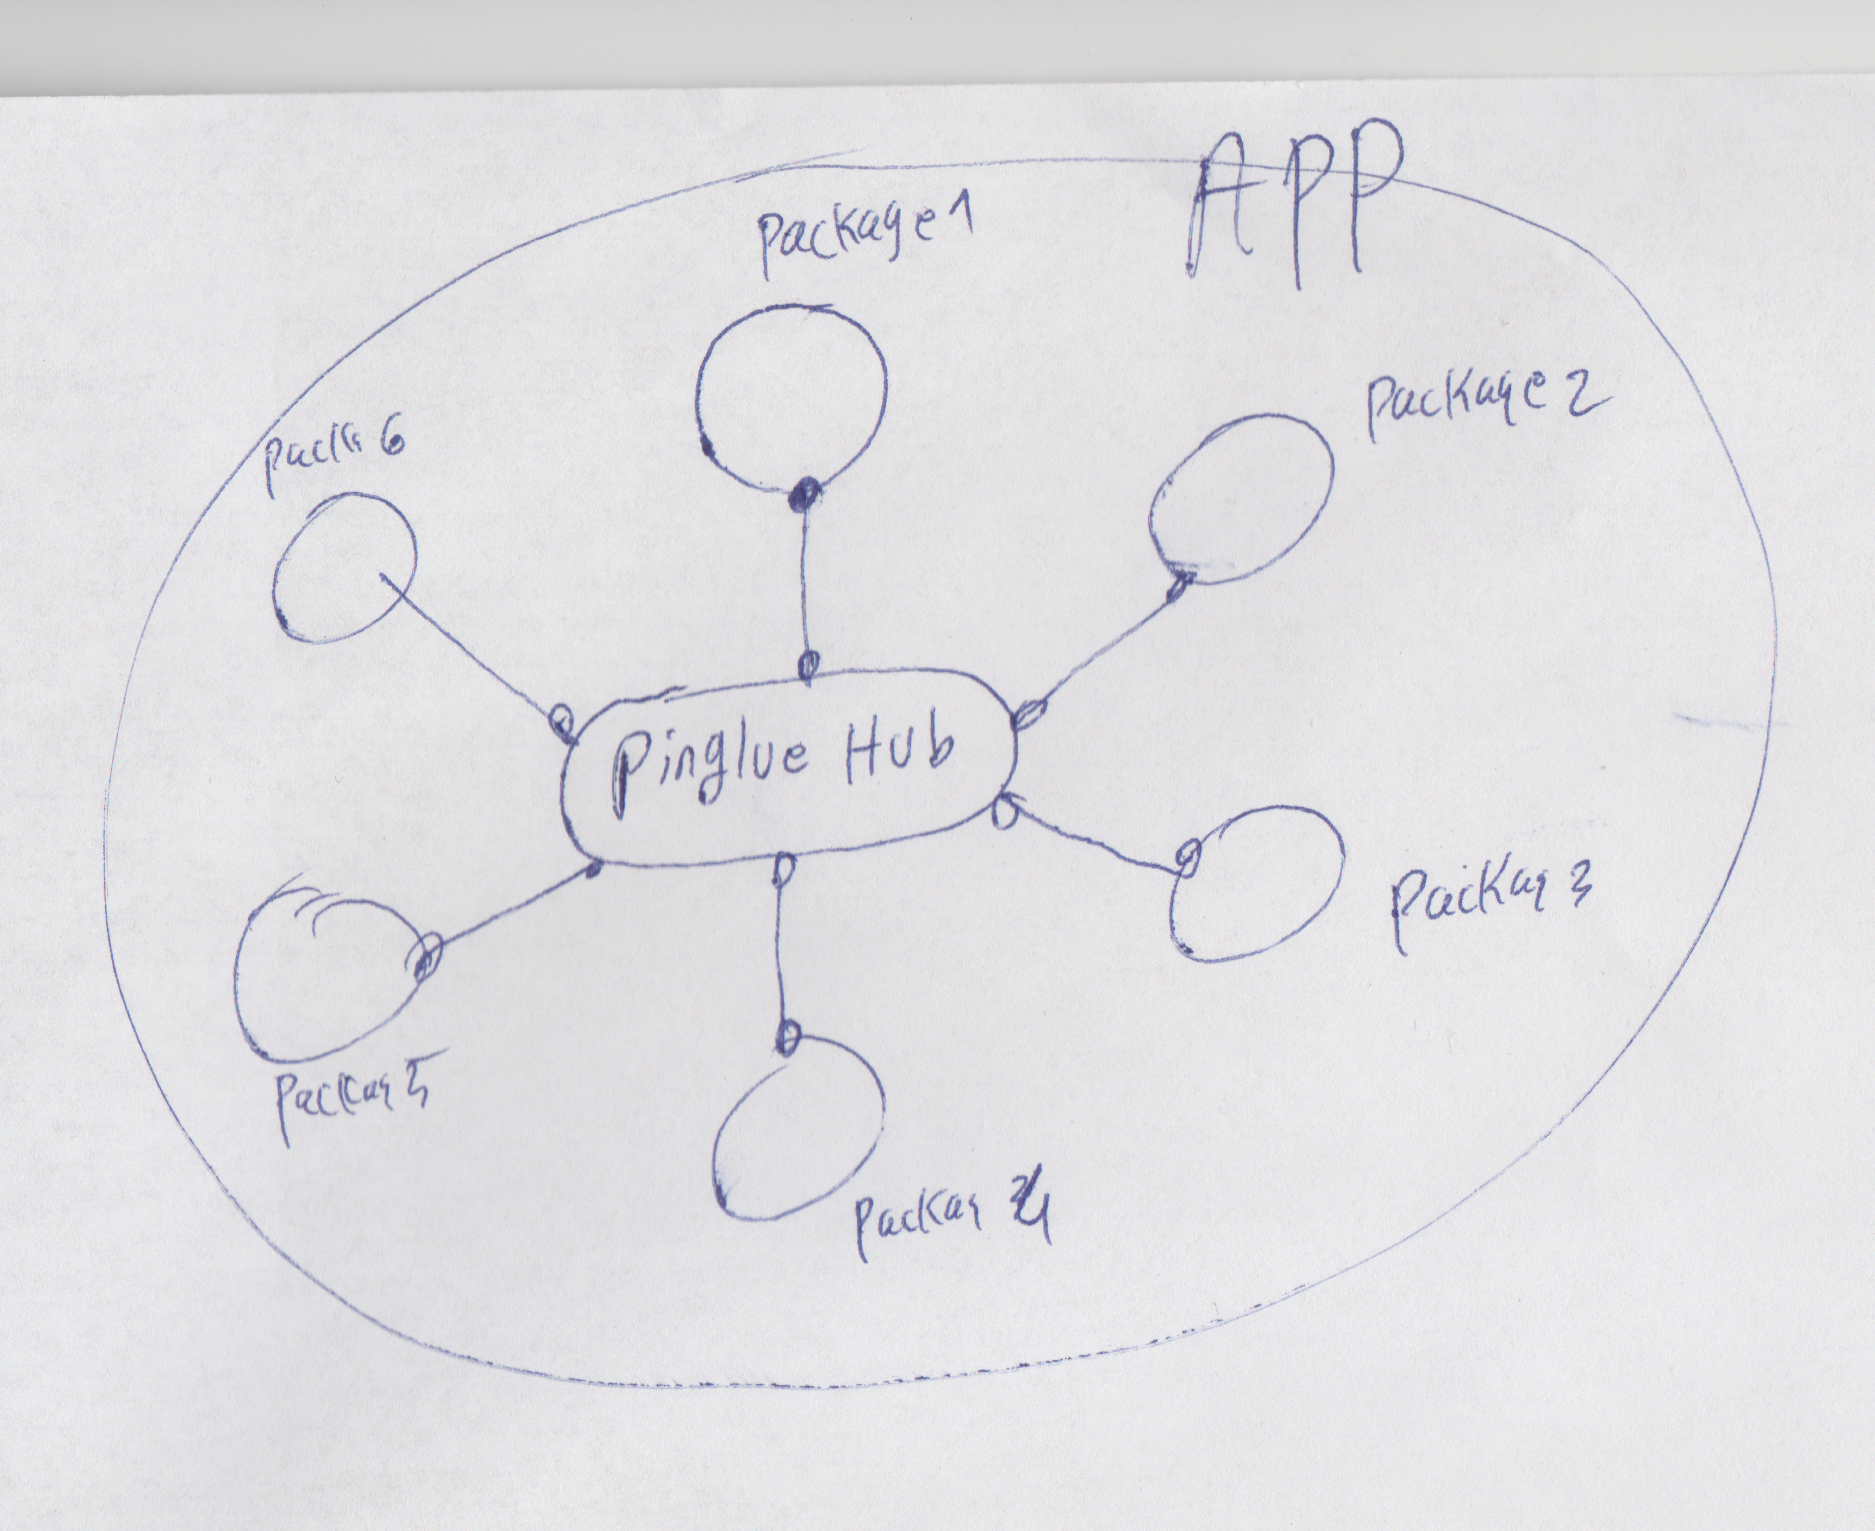 APP
Package 1
Package 2
Pack 6
Pinglue Hub
Packag 3
Packag 5
Packag 4